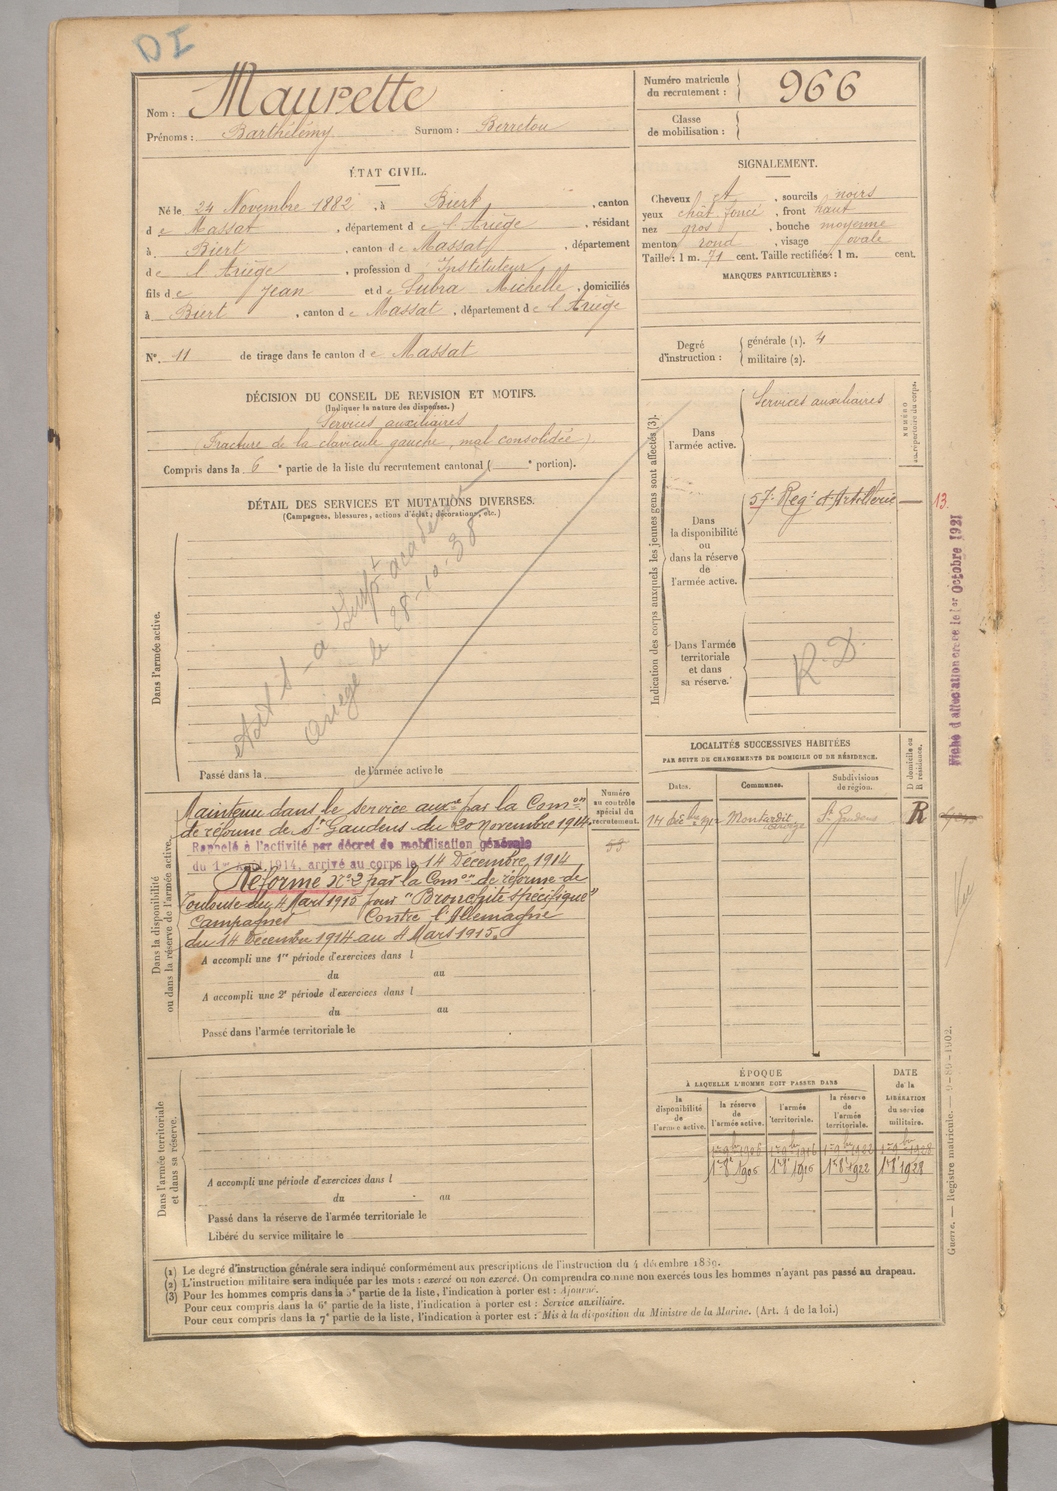 DI
Nom : Maurette
Prénoms : Barthélémy Surnom : Berretou
Numéro matricule du recrutement : 966
Classe de mobilisation :
ÉTAT CIVIL.
Né le 24 Novembre 1882, à Biert, canton
de Massat, département de l'Ariège, résidant
à Biert, canton de Massat, département
de l'Ariège, profession d'Instituteur
fils de Jean et de Subra Michelle, domiciliés
à Biert, canton de Massat, département de l'Ariège
N°. 11 de tirage dans le canton de Massat
SIGNALEMENT.
Cheveux et, sourcils noirs
yeux chât. foncé, front haut
nez gros, bouche moyenne
menton rond, visage ovale
Taille : 1 m. 71 cent. Taille rectifiée : 1 m. cent.
MARQUES PARTICULIÈRES :
Degré d'instruction : générale (1). 4
militaire (2).
DÉCISION DU CONSEIL DE REVISION ET MOTIFS.
(Indiquer la nature des dispenses.)
Services auxiliaires
(Fracture de la clavicule gauche, mal consolidée).
Compris dans la 6e partie de la liste du recrutement cantonal ( e portion).
DÉTAIL DES SERVICES ET MUTATIONS DIVERSES.
(Campagnes, blessures, actions d'éclat, décorations, etc.)
Dans l'armée active.
Ariège le 28-10-38
Passé dans la de l'armée active le
Indication des corps auxquels les jeunes gens sont affectés (3).
Dans l'armée active. Services auxiliaires
NUMÉRO au répertoire du corps.
Dans la disponibilité ou dans la réserve de l'armée active. 57e Regt d'Artillerie
13
Dans l'armée territoriale et dans sa réserve. R.D.
Fiche d'affectation créée le 1er Octobre 1921
LOCALITÉS SUCCESSIVES HABITÉES
PAR SUITE DE CHANGEMENTS DE DOMICILE OU DE RÉSIDENCE.
Dates. Communes. Subdivisions de région. D domicile ou R résidence.
Montardit St Gaudens R
Dans la disponibilité ou dans la réserve de l'armée active.
Numéro au contrôle spécial du recrutement.
Maintenu dans le service auxre par la Comon
de réforme de St Gaudens du 20 novembre 1914.
Rappelé à l'activité par décret de mobilisation générale
du 1er Août 1914, arrivé au corps le 14 Décembre 1914
Réformé N°2 par la Comon de réforme de
Toulouse du 4 Mars 1915 pour "Bronchite spécifique"
Campagnes Contre l'Allemagne
du 14 Décembre 1914 au 4 Mars 1915.
A accompli une 1re période d'exercices dans l
du au
A accompli une 2e période d'exercices dans l
du au
Passé dans l'armée territoriale le
Dans l'armée territoriale et dans sa réserve.
A accompli une période d'exercices dans l
du au
Passé dans la réserve de l'armée territoriale le
Libéré du service militaire le
ÉPOQUE
À LAQUELLE L'HOMME DOIT PASSER DANS
DATE de la LIBÉRATION du service militaire.
la disponibilité de l'armée active. la réserve de l'armée active. l'armée territoriale. la réserve de l'armée territoriale.
1er 8bre 1906 1er 8bre 1916 1er 8bre 1922 1er 8bre 1928
Guerre. — Registre matricule. — 9-80-1902.
(1) Le degré d'instruction générale sera indiqué conformément aux prescriptions de l'instruction du 4 décembre 1889.
(2) L'instruction militaire sera indiquée par les mots : exercé ou non exercé. On comprendra comme non exercés tous les hommes n'ayant pas passé au drapeau.
(3) Pour les hommes compris dans la 5e partie de la liste, l'indication à porter est : Ajourné.
Pour ceux compris dans la 6e partie de la liste, l'indication à porter est : Service auxiliaire.
Pour ceux compris dans la 7e partie de la liste, l'indication à porter est : Mis à la disposition du Ministre de la Marine. (Art. 4 de la loi.)